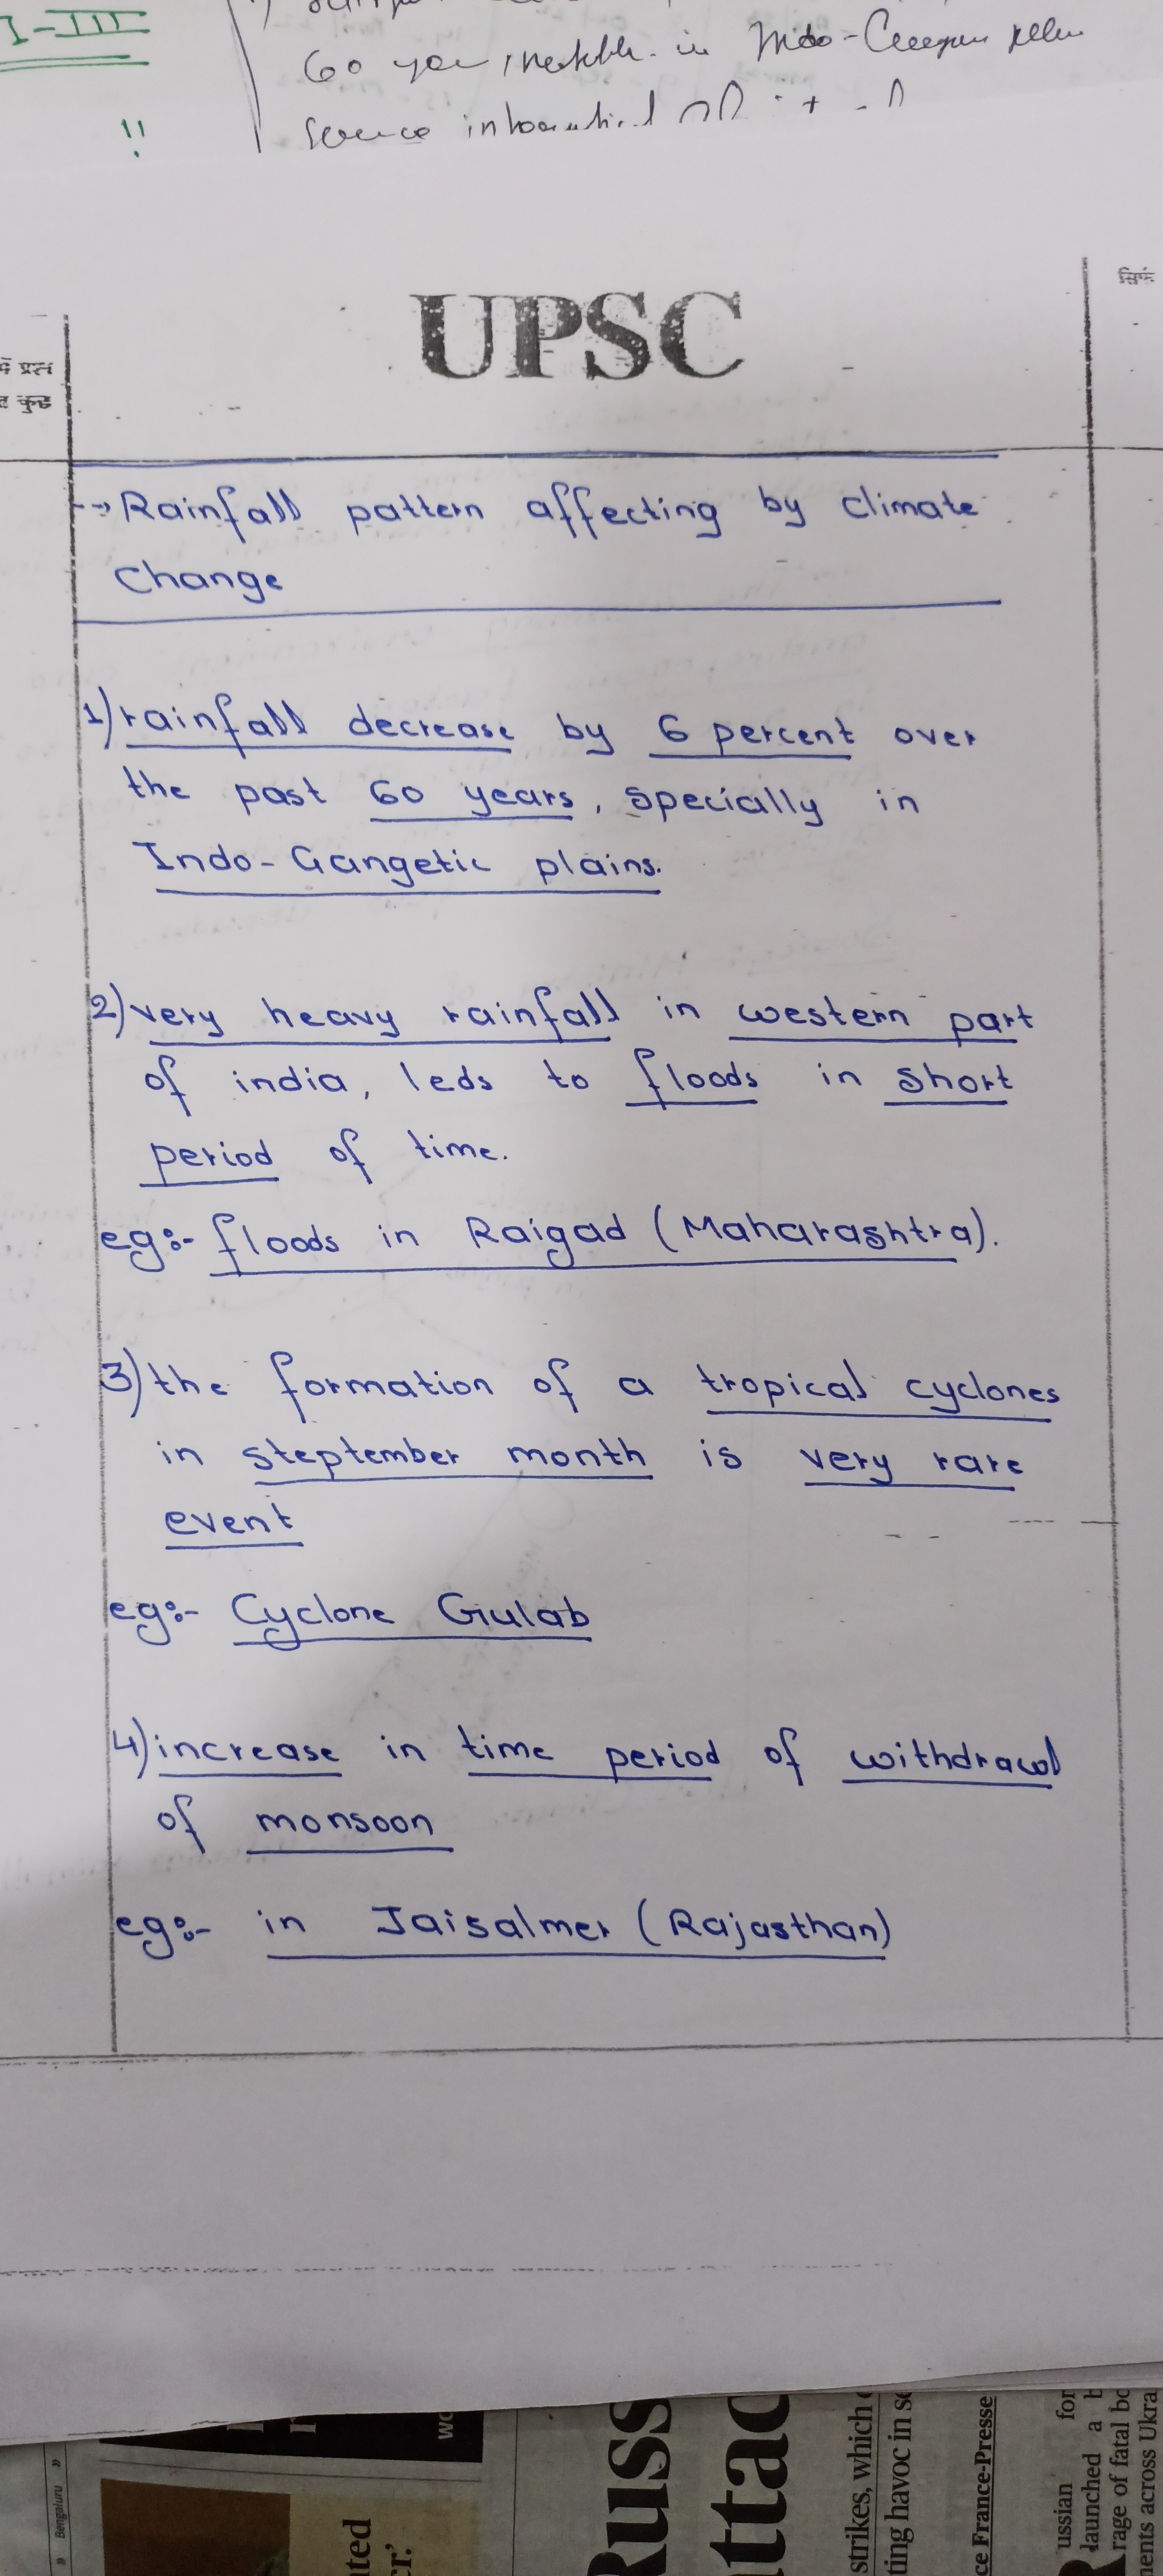 I-III
!!
60 in Indo-
UPSC
सिर्फ
में प्रश्न
कुछ
→ Rainfall pattern affecting by climate
change
1) rainfall decrease by 6 percent over
the past 60 years, specially in
Indo-Gangetic plains.
2) very heavy rainfall in western part
of india, leds to floods in short
period of time.
eg:- floods in Raigad (Maharashtra).
3) the formation of a tropical cyclones
in steptember month is very rare
event
eg:- Cyclone Gulab
4) increase in time period of withdrawal
of monsoon
eg:- in Jaisalmer (Rajasthan)
» Bengaluru »
wo
ated
er.'
Russ
ttac
strikes, which
ting havoc in
ce France-Presse
ussian for
launched a b
rage of fatal bo
ents across Ukra